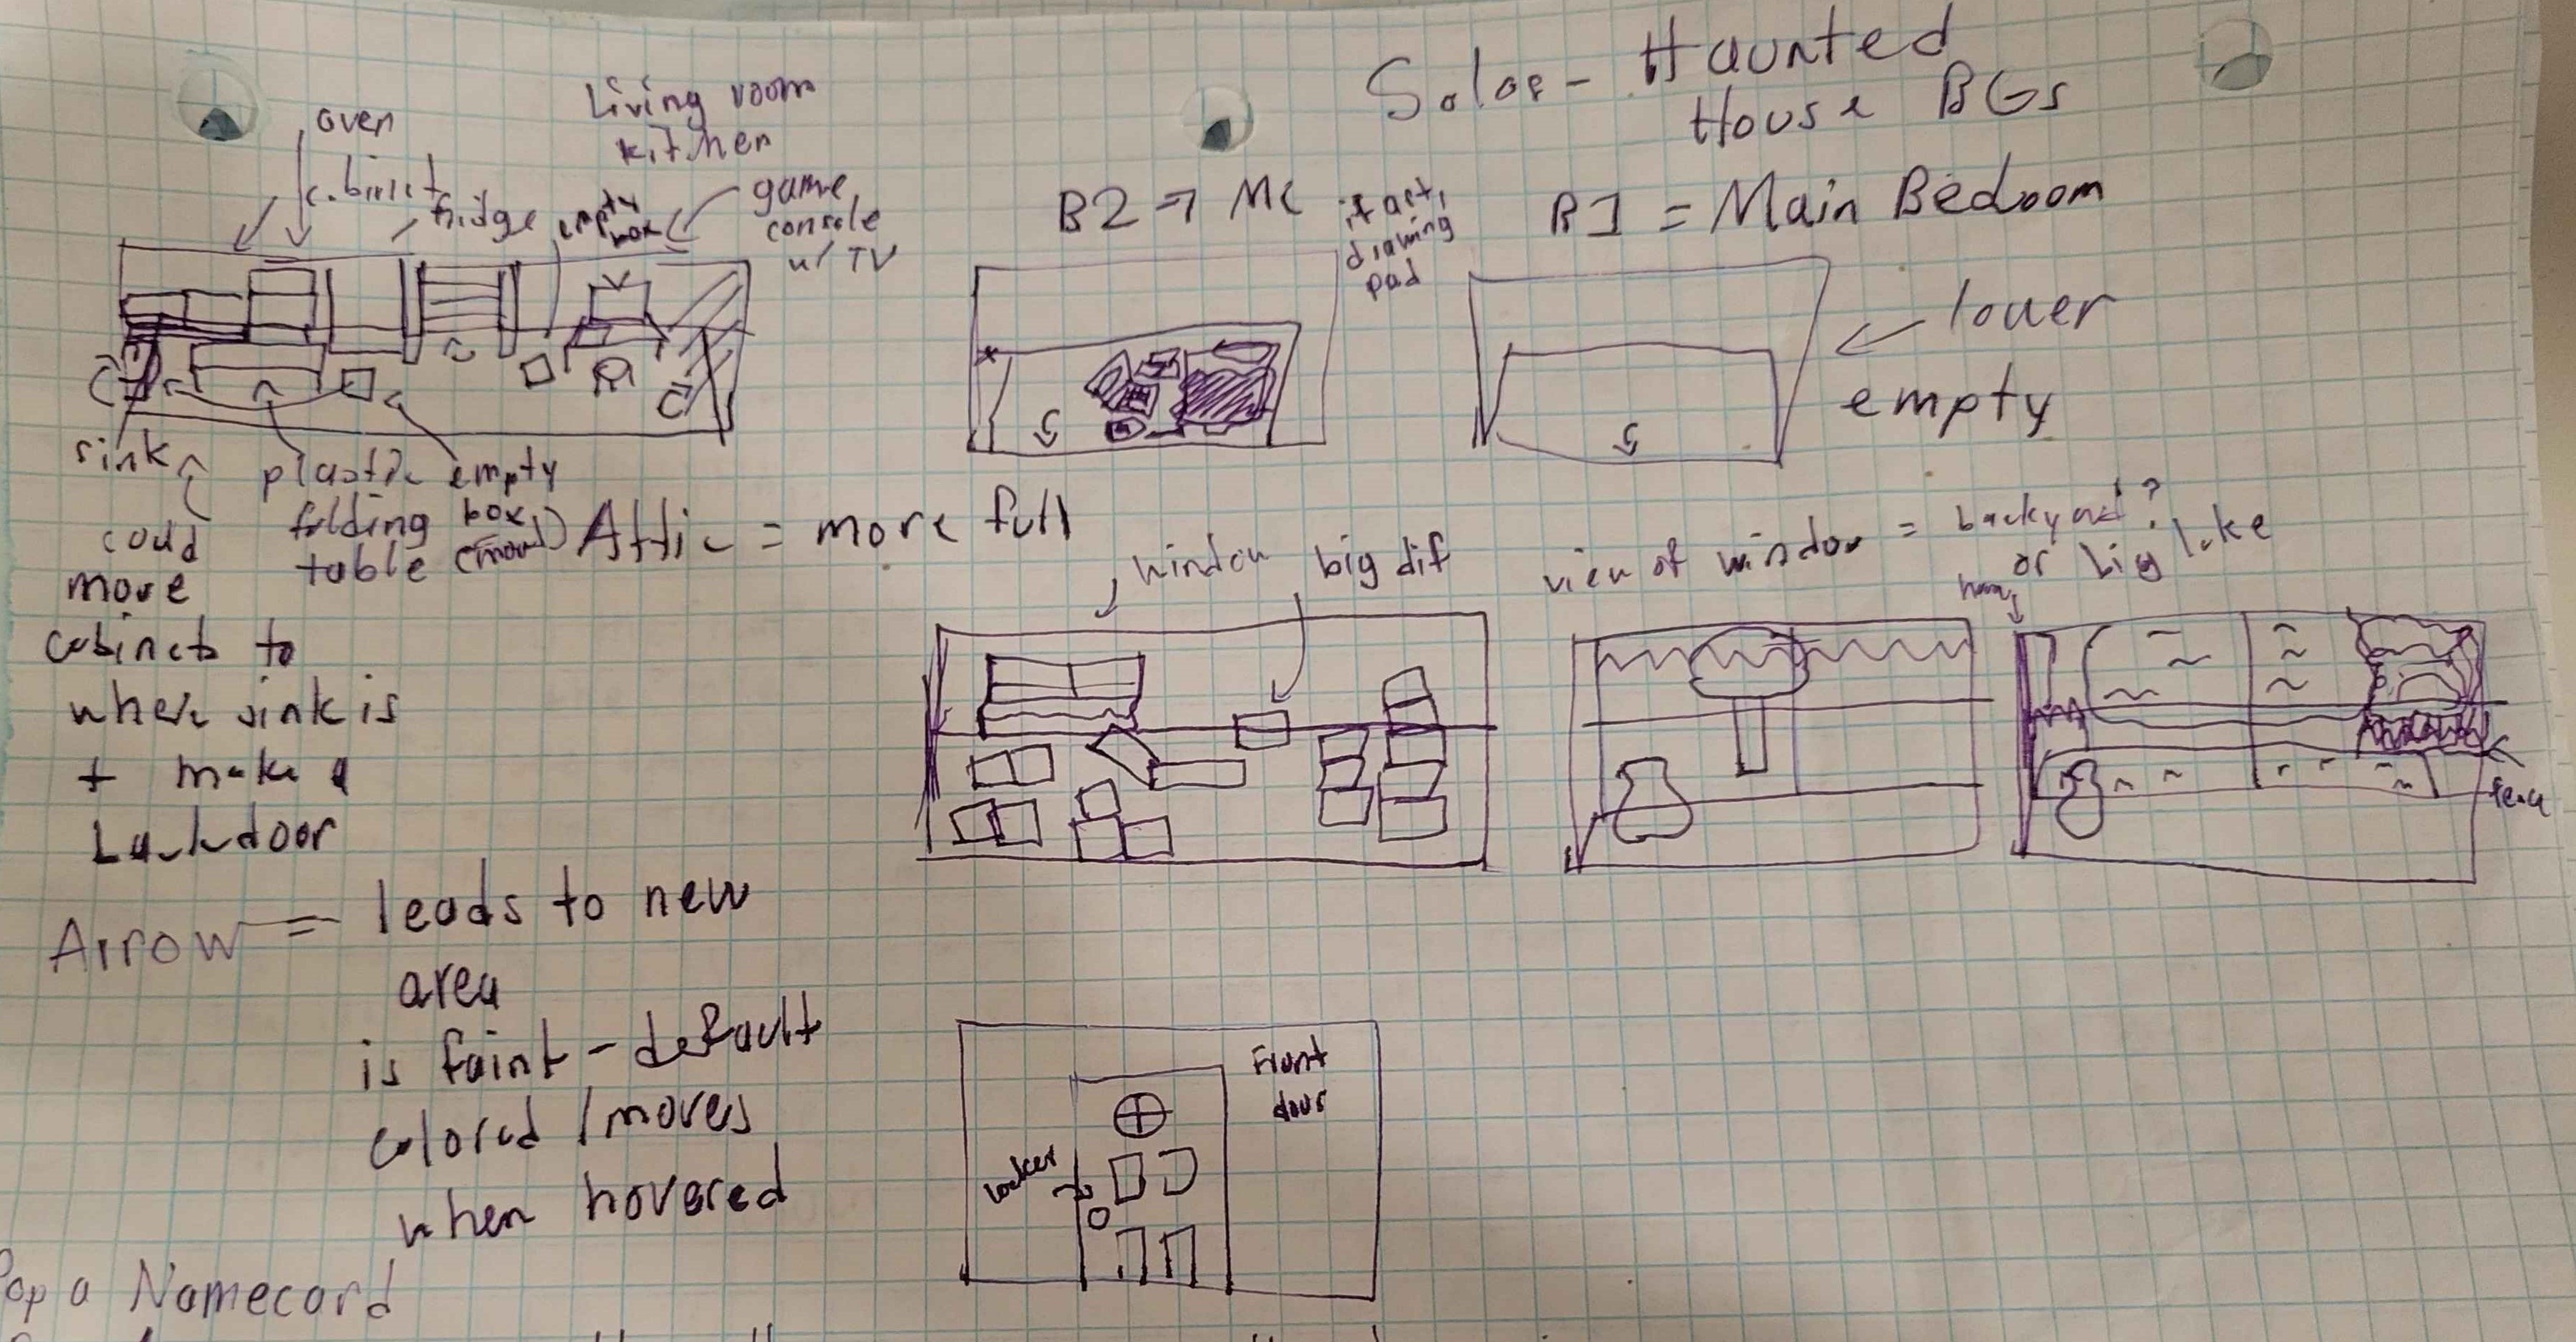 Solos - Haunted
House BGs
oven
Living room
kitchen
cabinet
fridge
empty
box
game
console
w/ TV
B2 → MC
if art,
drawing
pad
B1 = Main Bedoom
lower
empty
sink
could
move
cabinets to
where sink is
+ make a
backdoor
plastic
folding
table
empty
box
Attic = more full
window
big dif
view of window = backyard?
or big lake
fence
Arrow = leads to new
area
is faint - default
colored / moves
when hovered
Front
door
Pop a Namecard